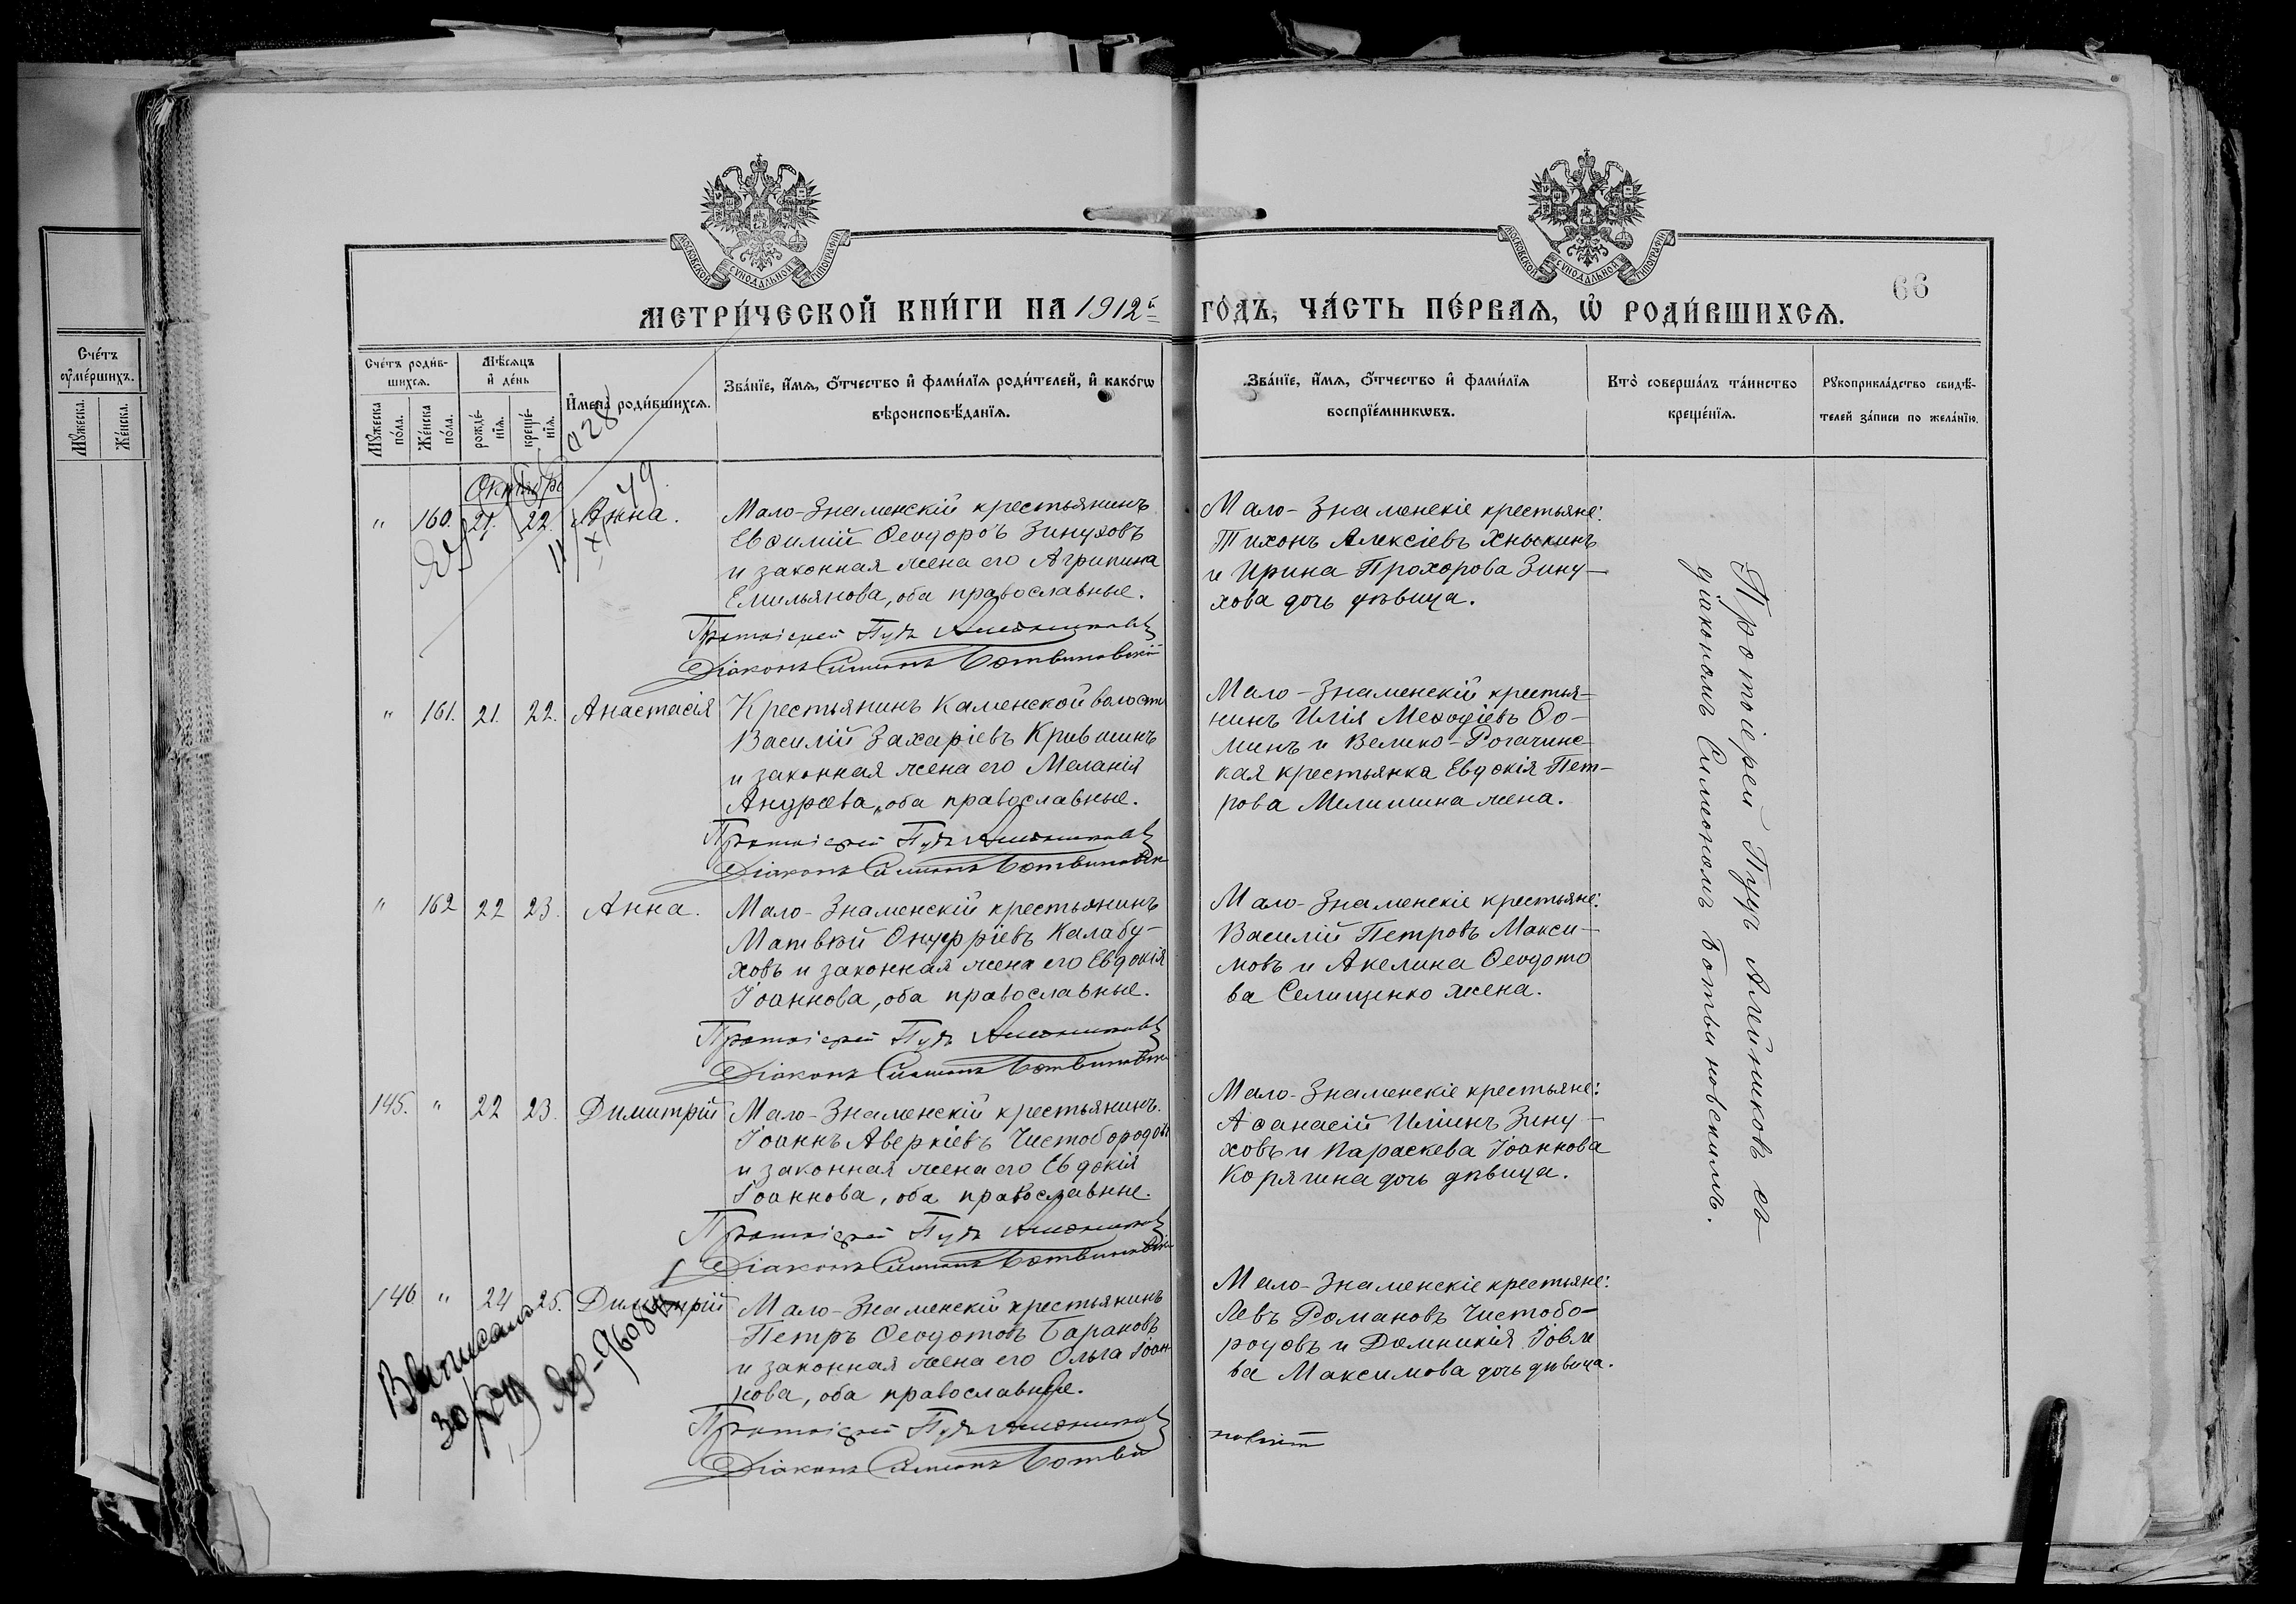 Счéтъ
ᲂу҆мéршихъ.
Мꙋ́жеска.
Жéнска.
МОСКОВСКОЙ СѴНОДАЛЬНОЙ ТИПОГРАФІИ
МОСКОВСКОЙ СѴНОДАЛЬНОЙ ТИПОГРАФІИ
66
МЕТРИ́ЧЕСКОЙ КНИ́ГИ НА 1912й
ГО́ДЪ, ЧА́СТЬ ПЕ́РВАѦ, Ѡ҆ РОДИ́ВШИХСѦ.
Счéтъ роди́в-
шихсѧ.
Мѣ́сѧцъ
и҆ дéнь
Мꙋ́жеска
по́ла.
Жéнска
по́ла.
рождé-
нїѧ.
крещé-
нїѧ.
И҆мена̀ роди́вшихсѧ.
Зва́нїе, и҆́мѧ, ѻ҆́тчество и҆ фами́лїѧ роди́телей, и҆ како́гѡ
вѣроисповѣ́данїѧ.
Зва́нїе, и҆́мѧ, ѻ҆́тчество и҆ фами́лїѧ
воспрїéмникѡвъ.
Кто̀ соверша́лъ та́инство
крещéнїѧ.
Рꙋкоприкла́дство свидѣ́-
телей за́писи по жела́нїю.
Октябрь
" 160. 21. 22. Анна.
Мало-Знаменскій крестьянинъ
Евѳимій Ѳеодоровъ Зинуховъ
и законная жена его Агрипина
Емильянова, оба православные.
Протоіерей Пудъ Алейниковъ
Діаконъ Симеонъ Ботвиновскій
Мало-Знаменскіе крестьяне:
Тихонъ Алексіевъ Хныкинъ
и Ирина Прохорова Зину-
хова дочь дѣвица.
" 161. 21. 22. Анастасія
Крестьянинъ Каменской волости
Василій Захаріевъ Кривошинъ
и законная жена его Меланія
Андреева, оба православные.
Протоіерей Пудъ Алейниковъ
Діаконъ Симеонъ Ботвиновскій
Мало-Знаменскій крестья-
нинъ Илія Меѳодіевъ Ѳо-
минъ и Велико-Рогачинс-
кая крестьянка Евдокія Пет-
рова Мелишина жена.
" 162 22 23. Анна.
Мало-Знаменскій крестьянинъ
Матвѣй Онуфріевъ Калабу-
ховъ и законная жена его Евдокія
Іоаннова, оба православные.
Протоіерей Пудъ Алейниковъ
Діаконъ Симеонъ Ботвиновскій
Мало-Знаменскіе крестьяне:
Василій Петровъ Макси-
мовъ и Акелина Ѳеодото
ва Селищенко жена.
145. " 22 23. Димитрій
Мало-Знаменскій крестьянинъ
Іоаннъ Аверкіевъ Чистобородовъ
и законная жена его Евдокія
Іоаннова, оба православные.
Протоіерей Пудъ Алейниковъ
Діаконъ Симеонъ Ботвиновскій
Мало-Знаменскіе крестьяне:
Аѳанасій Иліинъ Зину-
ховъ и Параскева Іоаннова
Корягина дочь дѣвица.
146 " 24 25. Димитрій
Мало-Знаменскій крестьянинъ
Петръ Ѳеодотовъ Барановъ
и законная жена его Ольга Іоан-
нова, оба православные.
Протоіерей Пудъ Алейниковъ
Діаконъ Симеонъ Ботви
новскій
Мало-Знаменскіе крестьяне:
Левъ Романовъ Чистобо-
родовъ и Домникія Іовле
ва Максимова дочь дѣвица.
Протоіерей Пудъ Алейниковъ съ
діакономъ Симеономъ Ботвиновскимъ.
Выписано